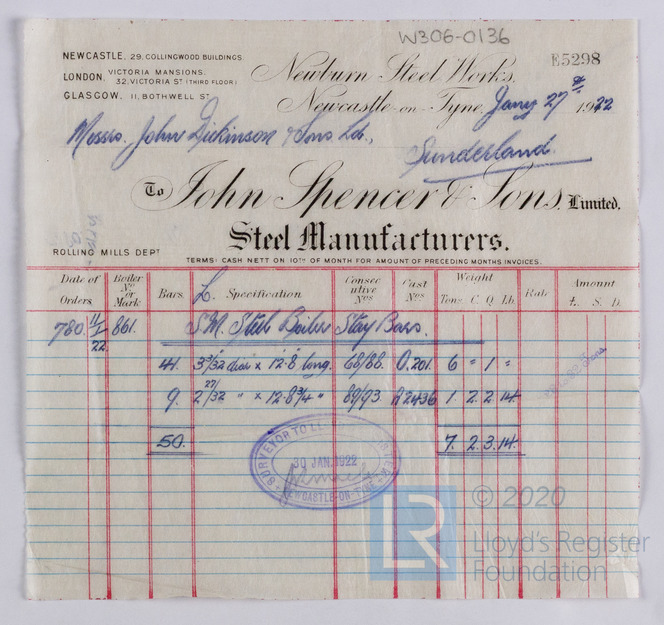 W306-0136
NEWCASTLE, 29. COLLINGWOOD BUILDINGS
LONDON, VICTORIA MANSIONS. 32, VICTORIA ST (THIRD FLOOR)
GLASGOW, 11, BOTHWELL ST
Newburn Steel Works,
E5298
Newcastle-on-Tyne, Jany 27th 1922
Messrs. John Dickinson & Sons Ld.,
Sunderland.
To John Spencer & Sons, Limited.
Steel Manufacturers.
ROLLING MILLS DEPT
TERMS: CASH NETT ON 10TH OF MONTH FOR AMOUNT OF PRECEDING MONTHS INVOICES.
Date of Orders. Boiler No or Mark Bars. L. Specification Consecutive Nos Cast Nos Weight Tons. C. Q. Lb. Rate Amount £. S. D.
780. 11/1/22 861. S.M. Steel Boiler Stay Bars.
41. 3 3/32 diar x 12.8 long. 68/88. O.201. 6 " 1 "
9. 2 27/32 " x 12.8 3/4 " 89/93 A2436 1. 2. 2. 14.
50. 7. 2. 3. 14.
SURVEYOR TO LLOYD'S REGISTER
30 JAN. 1922
NEWCASTLE-ON-TYNE
LR
© 2020
Lloyd's Register
Foundation